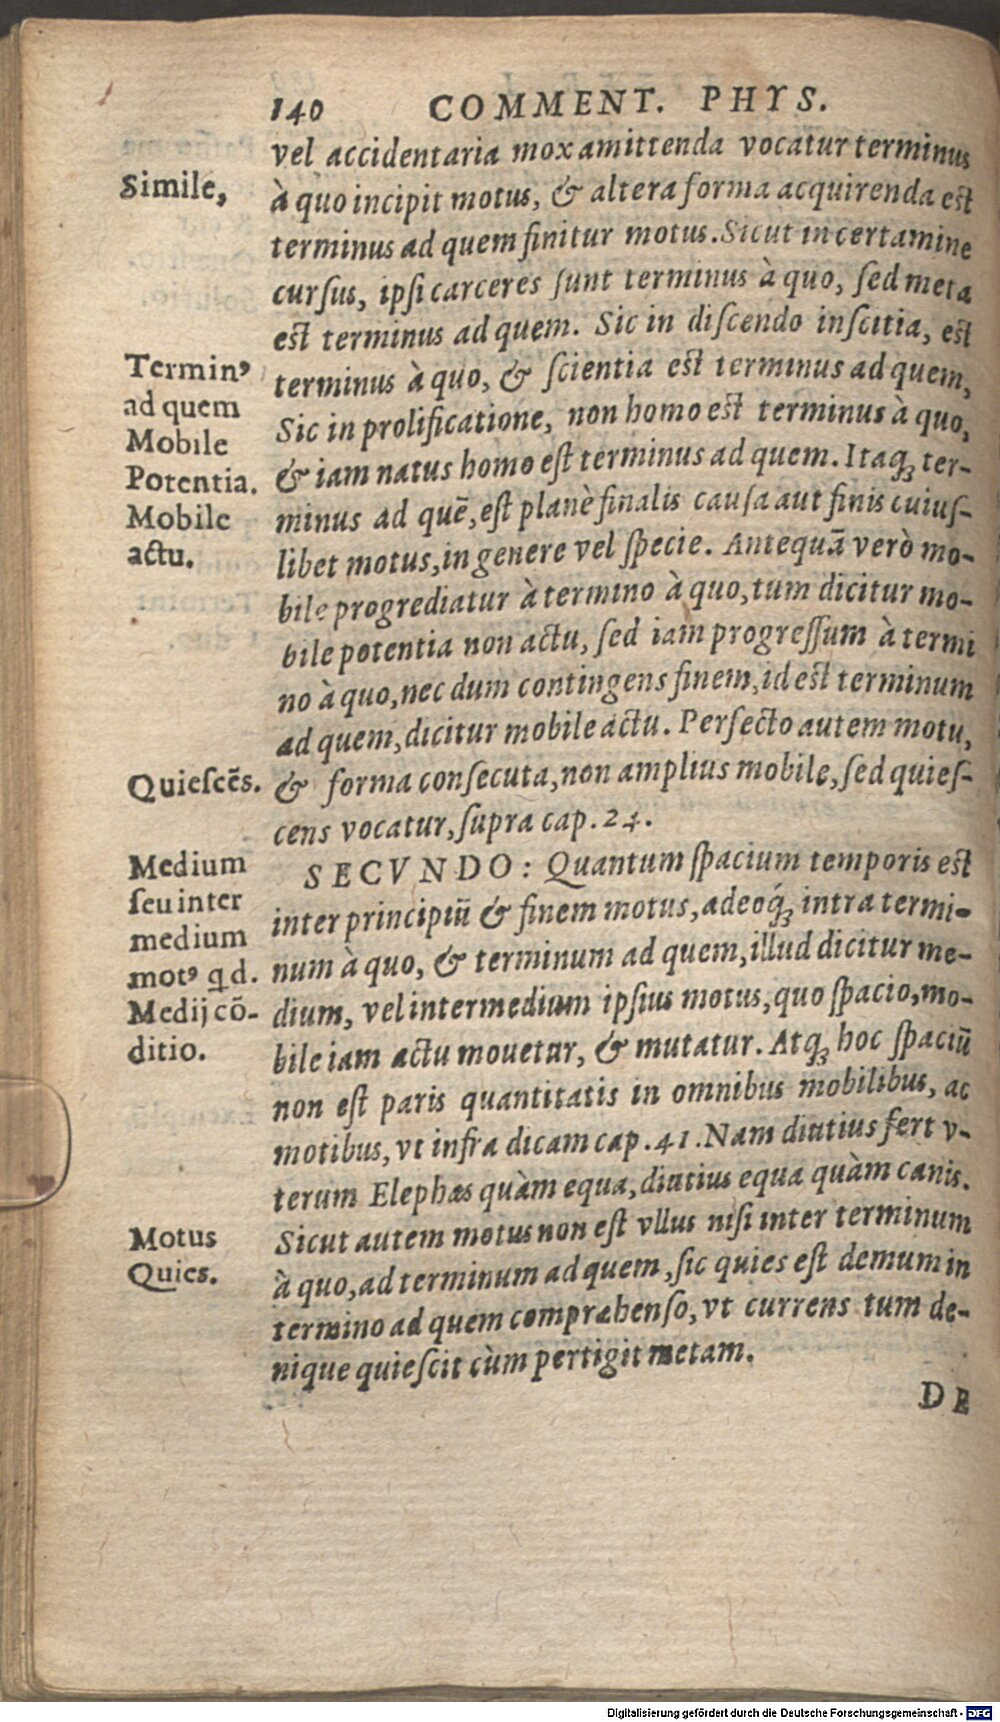 140 COMMENT. PHYS.
vel accidentaria mox amittenda vocatur terminus
Simile,
à quo incipit motus, & altera forma acquirenda est
terminus ad quem finitur motus. Sicut in certamine
cursus, ipsi carceres sunt terminus à quo, sed meta
est terminus ad quem. Sic in discendo inscitia, est
Terminꝰ
ad quem
Mobile
Potentia.
Mobile
actu.
terminus à quo, & scientia est terminus ad quem,
Sic in prolificatione, non homo est terminus à quo,
& iam natus homo est terminus ad quem. Itaqꝫ ter-
minus ad quē, est planè finalis causa aut finis cuius-
libet motus, in genere vel specie. Antequā verò mo-
bile progrediatur à termino à quo, tum dicitur mo-
bile potentia non actu, sed iam progressum à termi
no à quo, nec dum contingens finem, id est terminum
ad quem, dicitur mobile actu. Perfecto autem motu,
Quiescēs.
& forma consecuta, non amplius mobile, sed quies-
cens vocatur, supra cap. 24.
Medium
seu inter
medium
motꝰ qd.
Medij cō-
ditio.
SECVNDO: Quantum spacium temporis est
inter principiū & finem motus, adeoqꝫ́ intra termi-
num à quo, & terminum ad quem, illud dicitur me-
dium, vel intermedium ipsius motus, quo spacio, mo-
bile iam actu mouetur, & mutatur. Atqꝫ hoc spaciū
non est paris quantitatis in omnibus mobilibus, ac
motibus, vt infra dicam cap. 41. Nam diutius fert v-
terum Elephas quàm equa, diutius equa quàm canis.
Motus
Quies.
Sicut autem motus non est vllus nisi inter terminum
à quo, ad terminum ad quem, sic quies est demum in
termino ad quem comprahenso, vt currens tum de-
nique quiescit cùm pertigit metam.
DE
Digitalisierung gefördert durch die Deutsche Forschungsgemeinschaft - DFG